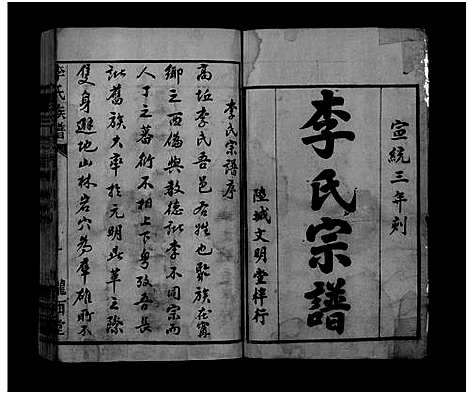 宣統三年刻
李氏宗譜
陸城文明堂梓行
李氏宗譜序
高坵李氏吾邑右姓也聚族在窩
鄉之西偽與敦德訛李不同宗而
人丁之蕃衍不相上下粵攷吾長
訛舊族大率於元明鼎革之際
隻身避地山林岩穴為羣雄所不
李氏族譜